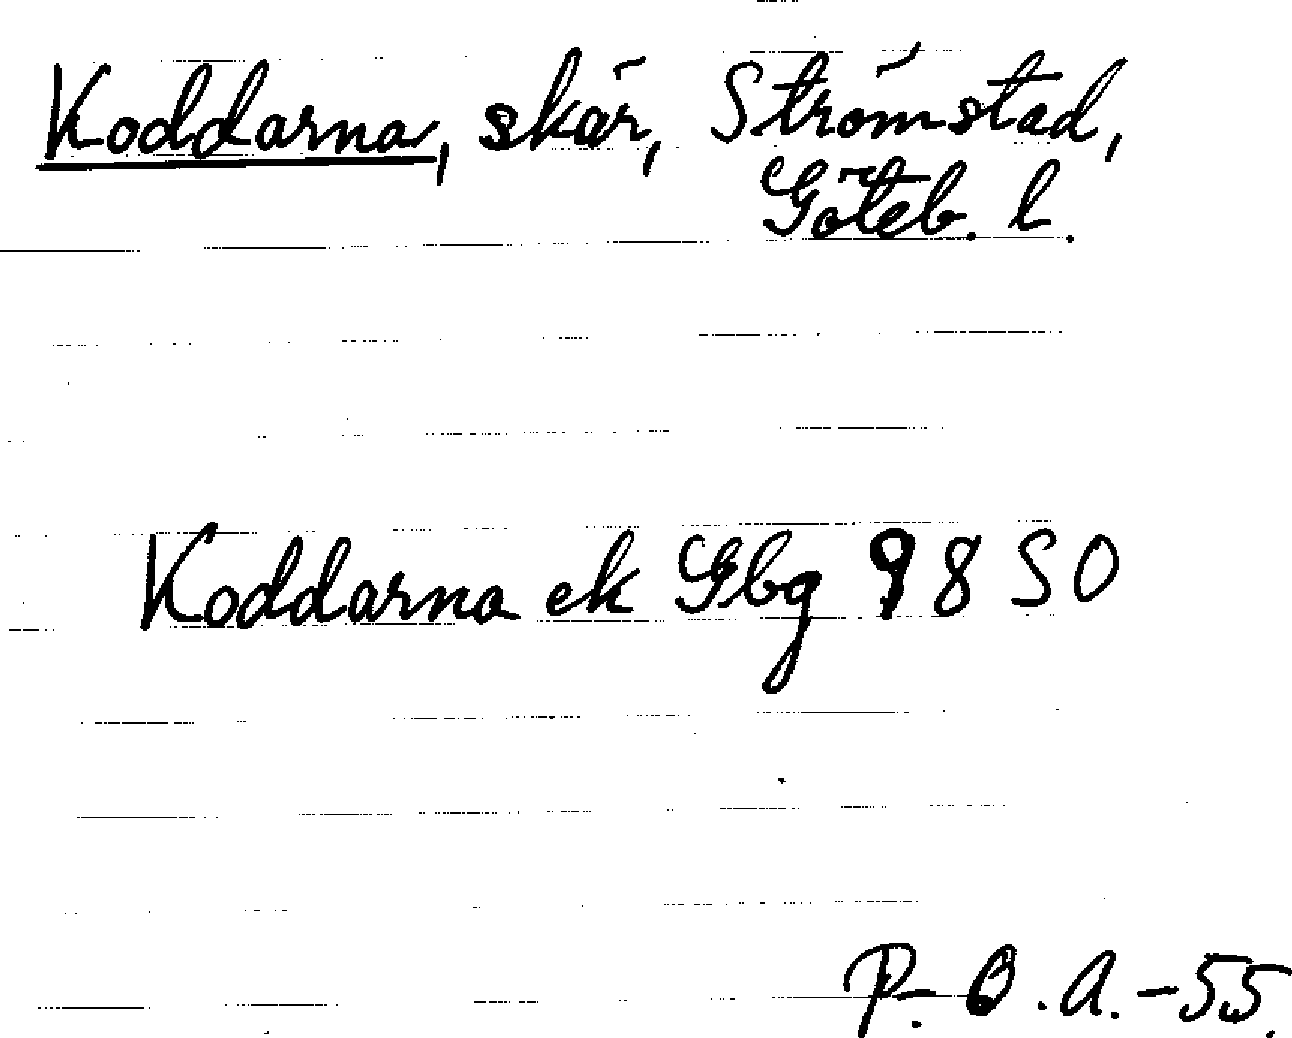 Koddarna, skär, Strömstad,
Göteb. l.
Koddarna ek Gbg 98 SO
P. O. A. - 55.